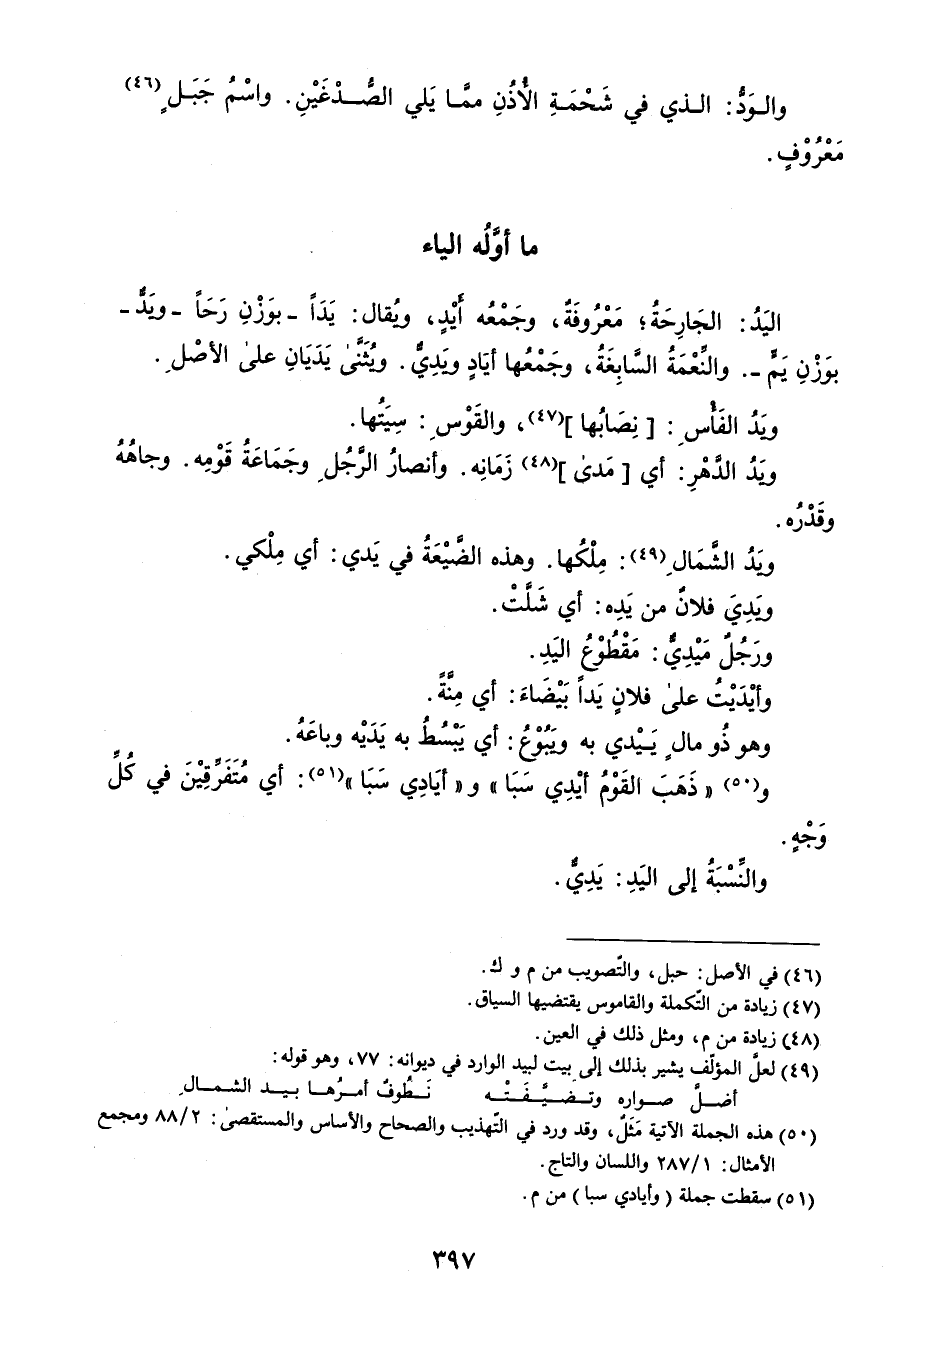 والوَدُّ: الذي في شَحْمَةِ الأُذُنِ ممَّا يَلي الصُّدْغَيْنِ. واسْمُ جَبَلٍ(٤٦)
مَعْرُوْفٍ.
ما أوَّلُه الياء
اليَدُ: الجَارِحَةُ؛ مَعْرُوفَةٌ، وجَمْعُه أَيْدٍ، ويُقال: يَدَاً ـ بوَزْنِ رَحَاً ـ ويَدٌّ ـ
بوَزْنِ يَمٍّ ـ. والنِّعْمَةُ السَّابِغَةُ، وجَمْعُها أيَادٍ ويَدِيٌّ. ويُثَنَّىٰ يَدَيَانِ علىٰ الأصْلِ.
ويَدُ الفَأْسِ: [ نِصَابُها ](٤٧)، والقَوْسِ: سِيَتُها.
ويَدُ الدَّهْرِ: أي [ مَدىٰ ](٤٨) زَمَانِه. وأنصارُ الرَّجُلِ وجَمَاعَةُ قَوْمِه. وجاهُهُ
وقَدْرُه.
ويَدُ الشَّمَالِ(٤٩): مِلْكُها. وهذه الضَّيْعَةُ في يَدي: أي مِلْكي.
ويَدِيَ فلانٌ من يَدِه: أي شَلَّتْ.
ورَجُلٌ مَيْدِيٌّ: مَقْطُوْعُ اليَدِ.
وأيْدَيْتُ علىٰ فلانٍ يَداً بَيْضَاءَ: أي مِنَّةً.
وهو ذُو مالٍ يَيْدي به ويَبُوْعُ: أي يَبْسُطُ به يَدَيْه وباعَهُ.
و(٥٠) « ذَهَبَ القَوْمُ أيْدِي سَبَا » و « أيَادِي سَبَا »(٥١): أي مُتَفَرِّقِيْنَ في كُلِّ
وَجْهٍ.
والنِّسْبَةُ إلى اليَدِ: يَدِيٌّ.
(٤٦) في الأصل: حبل، والتّصويب من م و ك.
(٤٧) زيادة من التّكملة والقاموس يقتضيها السياق.
(٤٨) زيادة من م، ومثل ذلك في العين.
(٤٩) لعلَّ المؤلّف يشير بذلك إلى بيت لبيد الوارد في ديوانه: ٧٧، وهو قوله:
أضـلَّ صـواره وتـضـيَّـفَـتْـه نَـطُـوفٌ أمـرُهـا بـيـد الشـمـالِ
(٥٠) هذه الجملة الآتية مَثَلٌ، وقد ورد في التّهذيب والصحاح والأساس والمستقصىٰ: ٨٨/٢ ومجمع
الأمثال: ٢٨٧/١ واللسان والتاج.
(٥١) سقطت جملة ( وأيادي سبا ) من م.
٣٩٧